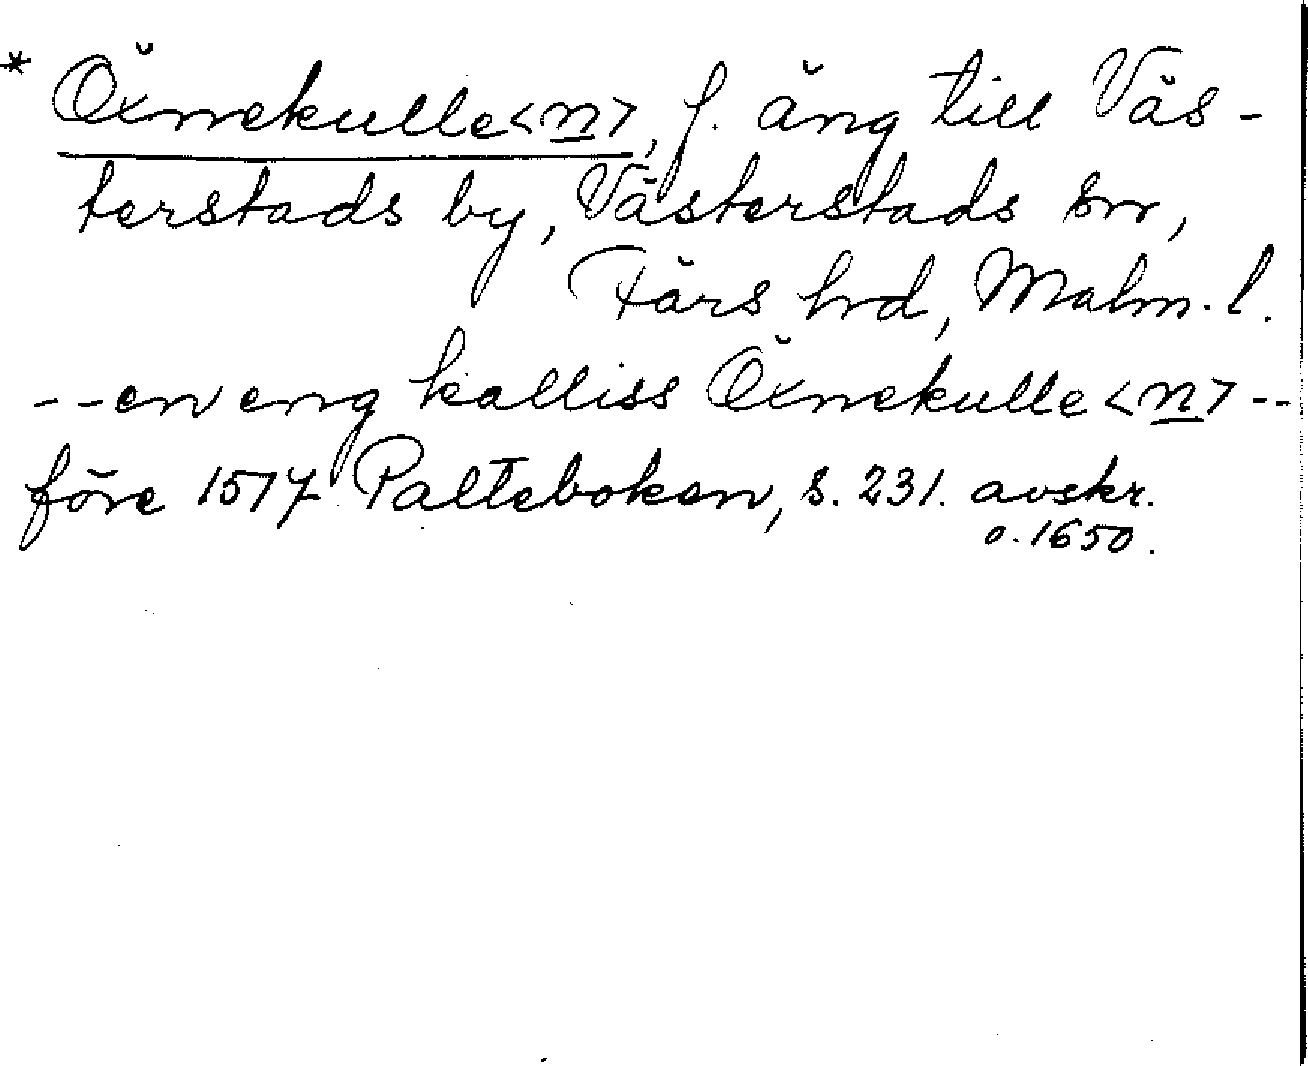 * Öxnekulle<n>, f. äng till Väs-
terstads by, Västerstads sn,
Färs hrd, Malm. l.
--en eng kalliss Öxnekulle<n>--
före 1517 Palteboken, s. 231. avskr.
o. 1650.